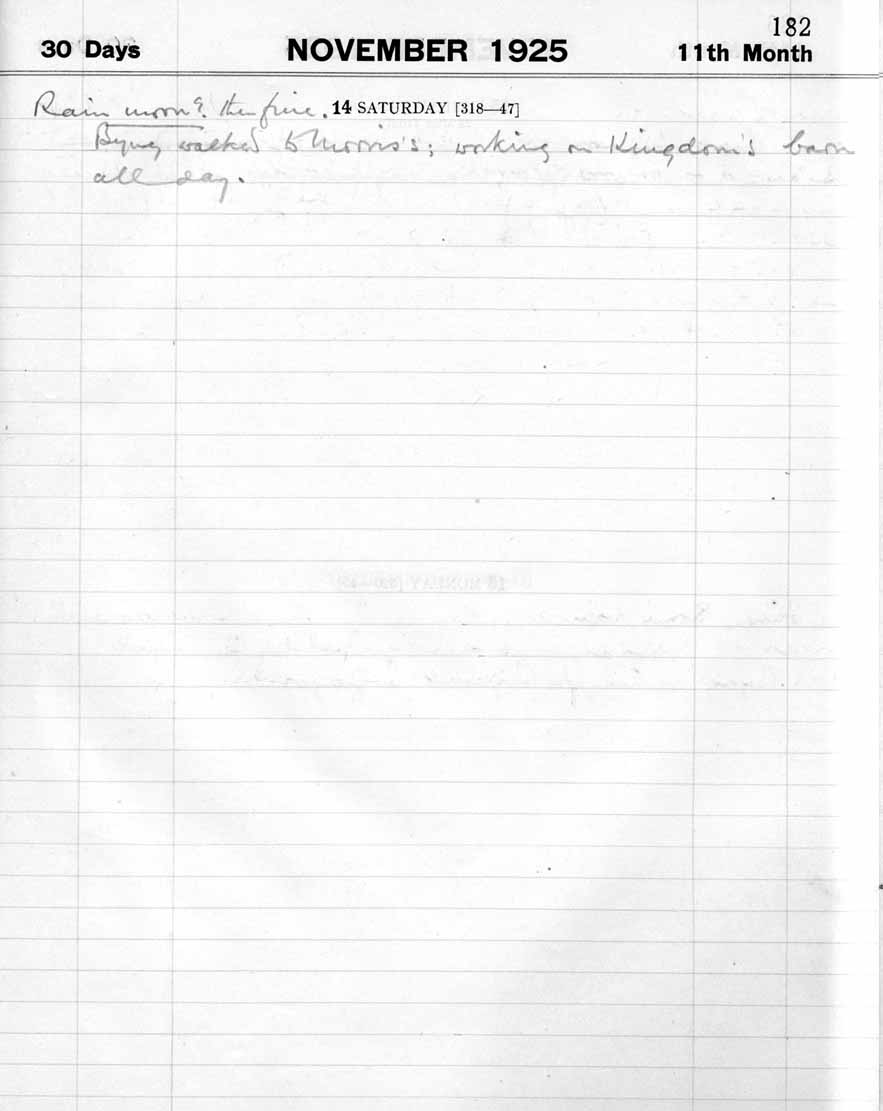 182
30 Days NOVEMBER 1925 11th Month
Rain morng. then fine. 14 SATURDAY [318—47]
Byng walked to Morris's; working on Kingdom's barn
all day.